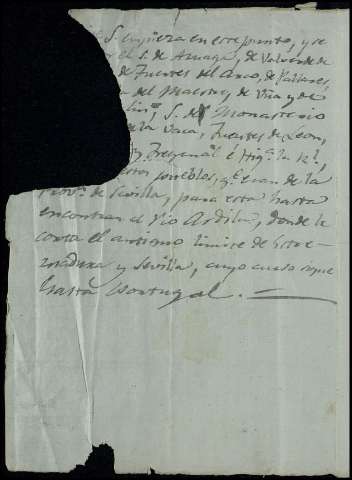 S. empieza en este punto, y se
el S. de Azuaga, y de Valverde de
de Fuentes del Arco, de Pallares,
del Maestre, de
S. de Monasterio
la Vaca, Fuentes de Leon,
y Fregenal é Hig.ª la R.l,
pueblos, q.e eran de la
Prov.ª de Sevilla, para esta hasta
encontrar el Rio Ardila, donde le
corta el antiguo limite de Estre-
madura y Sevilla, cuyo curso sigue
hasta Portugal.